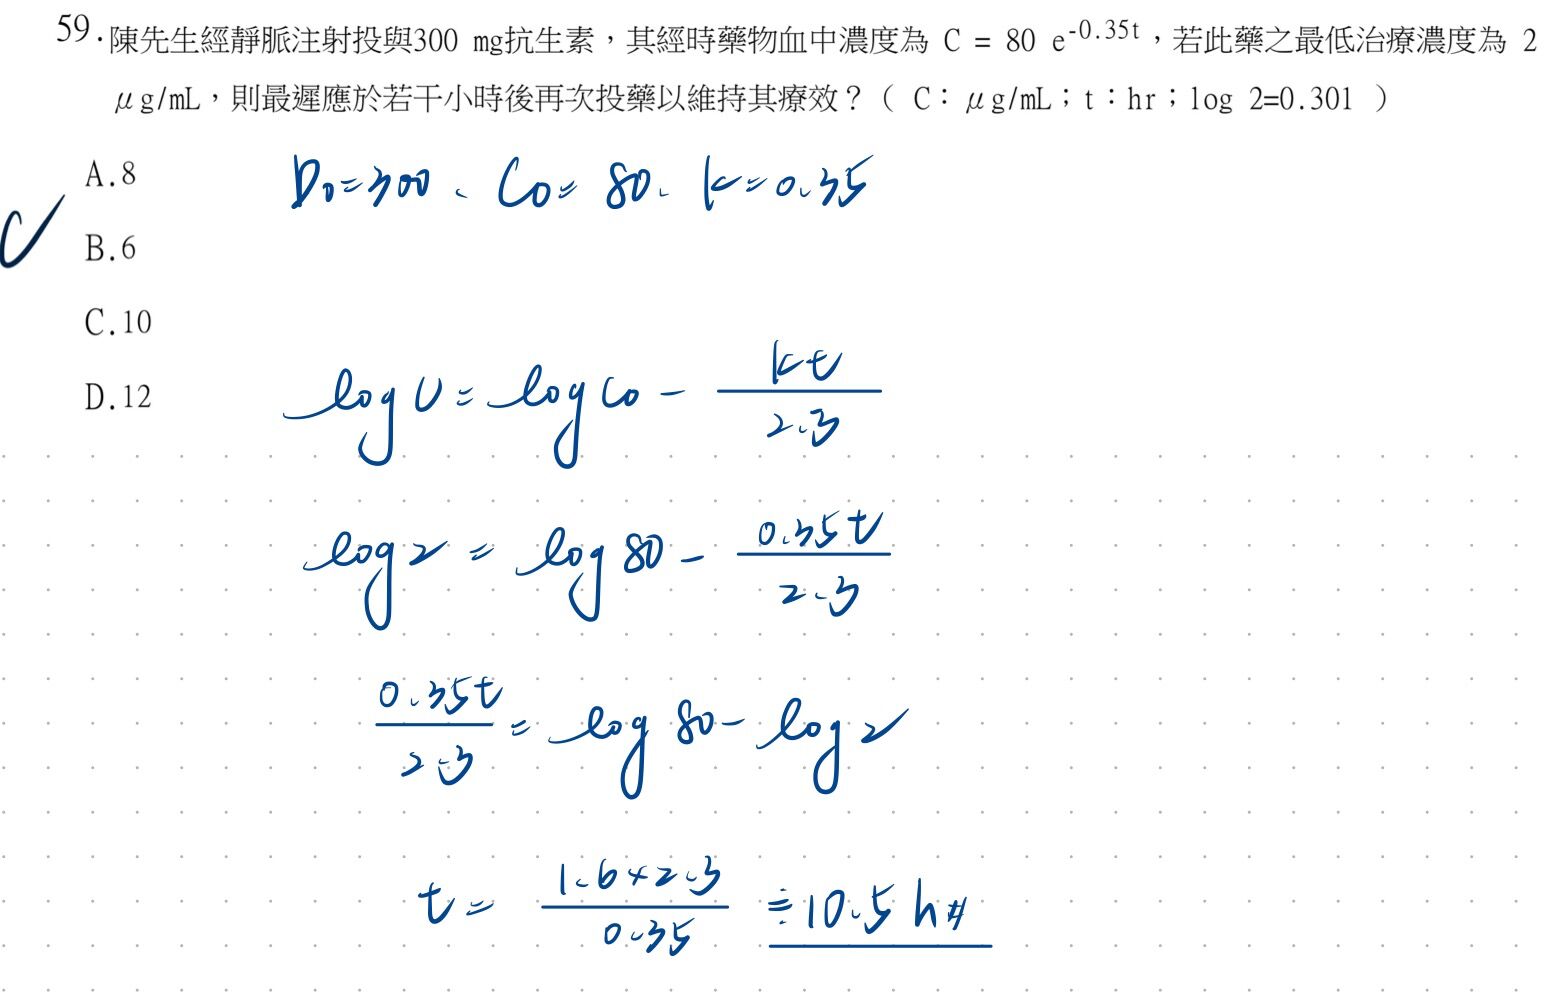 59.陳先生經靜脈注射投與300 mg抗生素，其經時藥物血中濃度為 C = 80 e^-0.35t，若此藥之最低治療濃度為 2
μg/mL，則最遲應於若干小時後再次投藥以維持其療效？（ C：μg/mL；t：hr；log 2=0.301 ）
A.8
B.6
C.10
D.12
C
D0=300、C0=80、k=0.35
log C = log C0 - kt/2.3
log 2 = log 80 - 0.35t/2.3
0.35t/2.3 = log 80 - log 2
t = 1.6×2.3/0.35 ≒ 10.5 h #